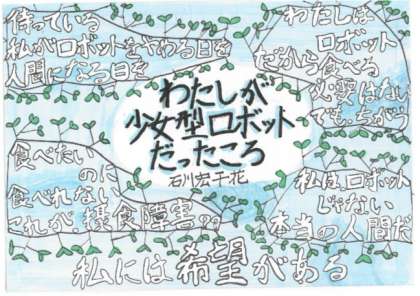 待っている
私がロボットをやめる日を
人間になる日を
わたしは
ロボット
だから食べる
必要はない
でもっ、ちがう
わたしが
少女型ロボット
だったころ
石川宏千花
食べたい
のに
食べれない
これが、摂食障害??
私はロボット
じゃない
本当の人間だ
私には希望がある